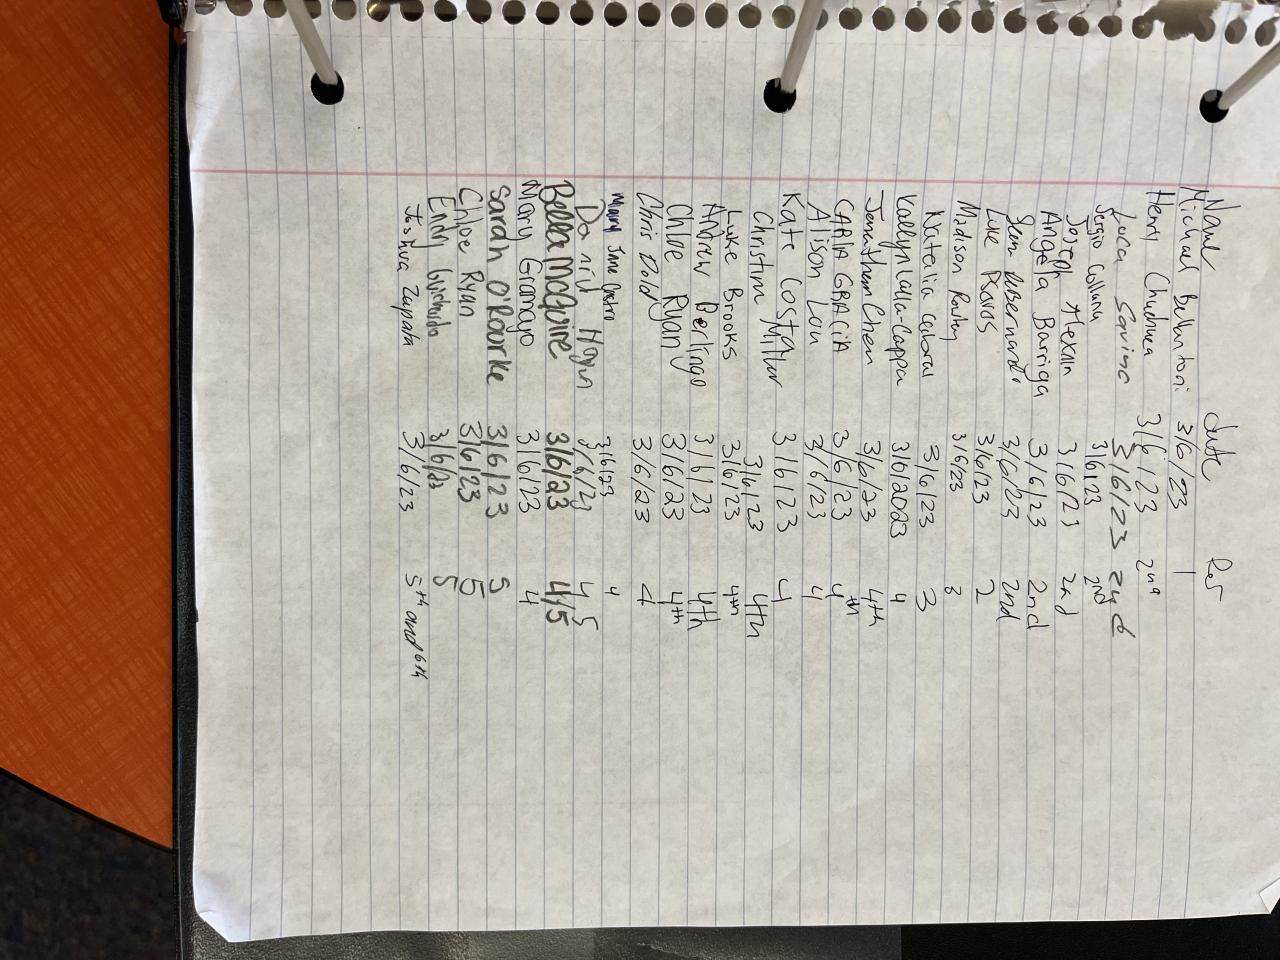 Name date Per
Michael Bellantoni 3/6/23 1
Henry 3/6/23 2nd
Luca Savino 3/6/23 2nd
Sergio 3/6/23 2nd
Joseph 3/6/23 2nd
Angela Barriga 3/6/23 2nd
3/6/23 2nd
Luke 3/6/23 2
Madison 3/6/23 3
Natalia Cabral 3/6/23 3
Kailyn Lalla-Cappa 3/6/2023 4
Jonathan Chen 3/6/23 4th
CARLA GRACIA 3/6/23 4th
Alison Lou 3/6/23 4
Kate Costa 3/6/23 4
Christine Miller 3/6/23 4th
Luke Brooks 3/6/23 4th
Andrew Berlingo 3/6/23 4th
Chloe Ryan 3/6/23 4th
Chris Dold 3/6/23 4
Mary Jane Castro 3/6/23 4
David 3/6/23 4 5
Bella McGuire 3/6/23 4/5
Mary Gramajo 3/6/23 4
Sarah O'Rourke 3/6/23 5
Chloe Ryan 3/6/23 5
Endy 3/6/23 5
Joshua Zapata 3/6/23 5th and 6th